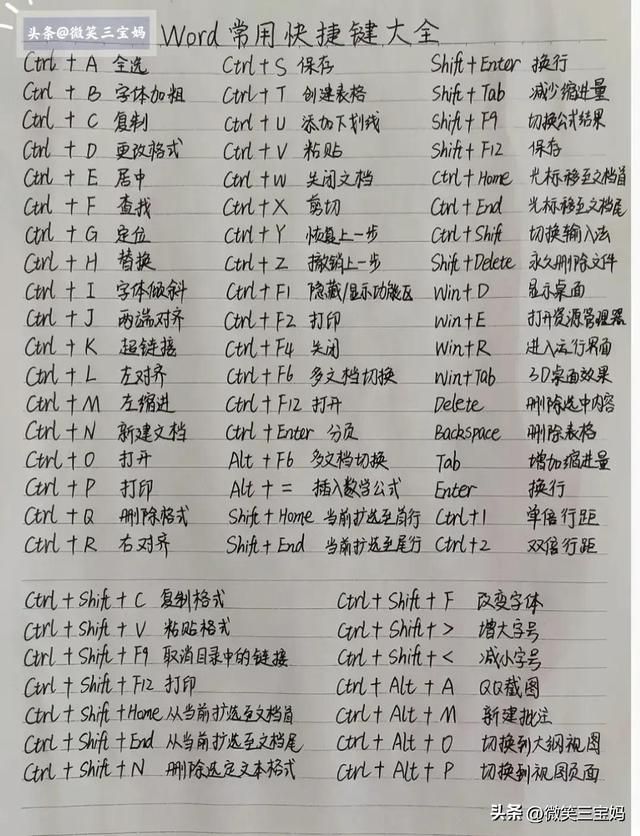 头条@微笑三宝妈
Word常用快捷键大全
Ctrl + A 全选 Ctrl + S 保存 Shift + Enter 换行
Ctrl + B 字体加粗 Ctrl + T 创建表格 Shift + Tab 减少缩进量
Ctrl + C 复制 Ctrl + U 添加下划线 Shift + F9 切换公式结果
Ctrl + D 更改格式 Ctrl + V 粘贴 Shift + F12 保存
Ctrl + E 居中 Ctrl + W 关闭文档 Ctrl + Home 光标移至文档首
Ctrl + F 查找 Ctrl + X 剪切 Ctrl + End 光标移至文档尾
Ctrl + G 定位 Ctrl + Y 恢复上一步 Ctrl + Shift 切换输入法
Ctrl + H 替换 Ctrl + Z 撤销上一步 Shift + Delete 永久删除文件
Ctrl + I 字体倾斜 Ctrl + F1 隐藏/显示功能区 Win + D 显示桌面
Ctrl + J 两端对齐 Ctrl + F2 打印 Win + E 打开资源管理器
Ctrl + K 超链接 Ctrl + F4 关闭 Win + R 进入运行界面
Ctrl + L 左对齐 Ctrl + F6 多文档切换 Win + Tab 3D桌面效果
Ctrl + M 左缩进 Ctrl + F12 打开 Delete 删除选中内容
Ctrl + N 新建文档 Ctrl + Enter 分页 Backspace 删除表格
Ctrl + O 打开 Alt + F6 多文档切换 Tab 增加缩进量
Ctrl + P 打印 Alt + = 插入数学公式 Enter 换行
Ctrl + Q 删除格式 Shift + Home 当前扩选至首行 Ctrl + 1 单倍行距
Ctrl + R 右对齐 Shift + End 当前扩选至尾行 Ctrl + 2 双倍行距
Ctrl + Shift + C 复制格式 Ctrl + Shift + F 改变字体
Ctrl + Shift + V 粘贴格式 Ctrl + Shift + > 增大字号
Ctrl + Shift + F9 取消目录中的链接 Ctrl + Shift + < 减小字号
Ctrl + Shift + F12 打印 Ctrl + Alt + A QQ截图
Ctrl + Shift + Home 从当前扩选至文档首 Ctrl + Alt + M 新建批注
Ctrl + Shift + End 从当前扩选至文档尾 Ctrl + Alt + O 切换到大纲视图
Ctrl + Shift + N 删除选定文本格式 Ctrl + Alt + P 切换到视图页面
头条@微笑三宝妈